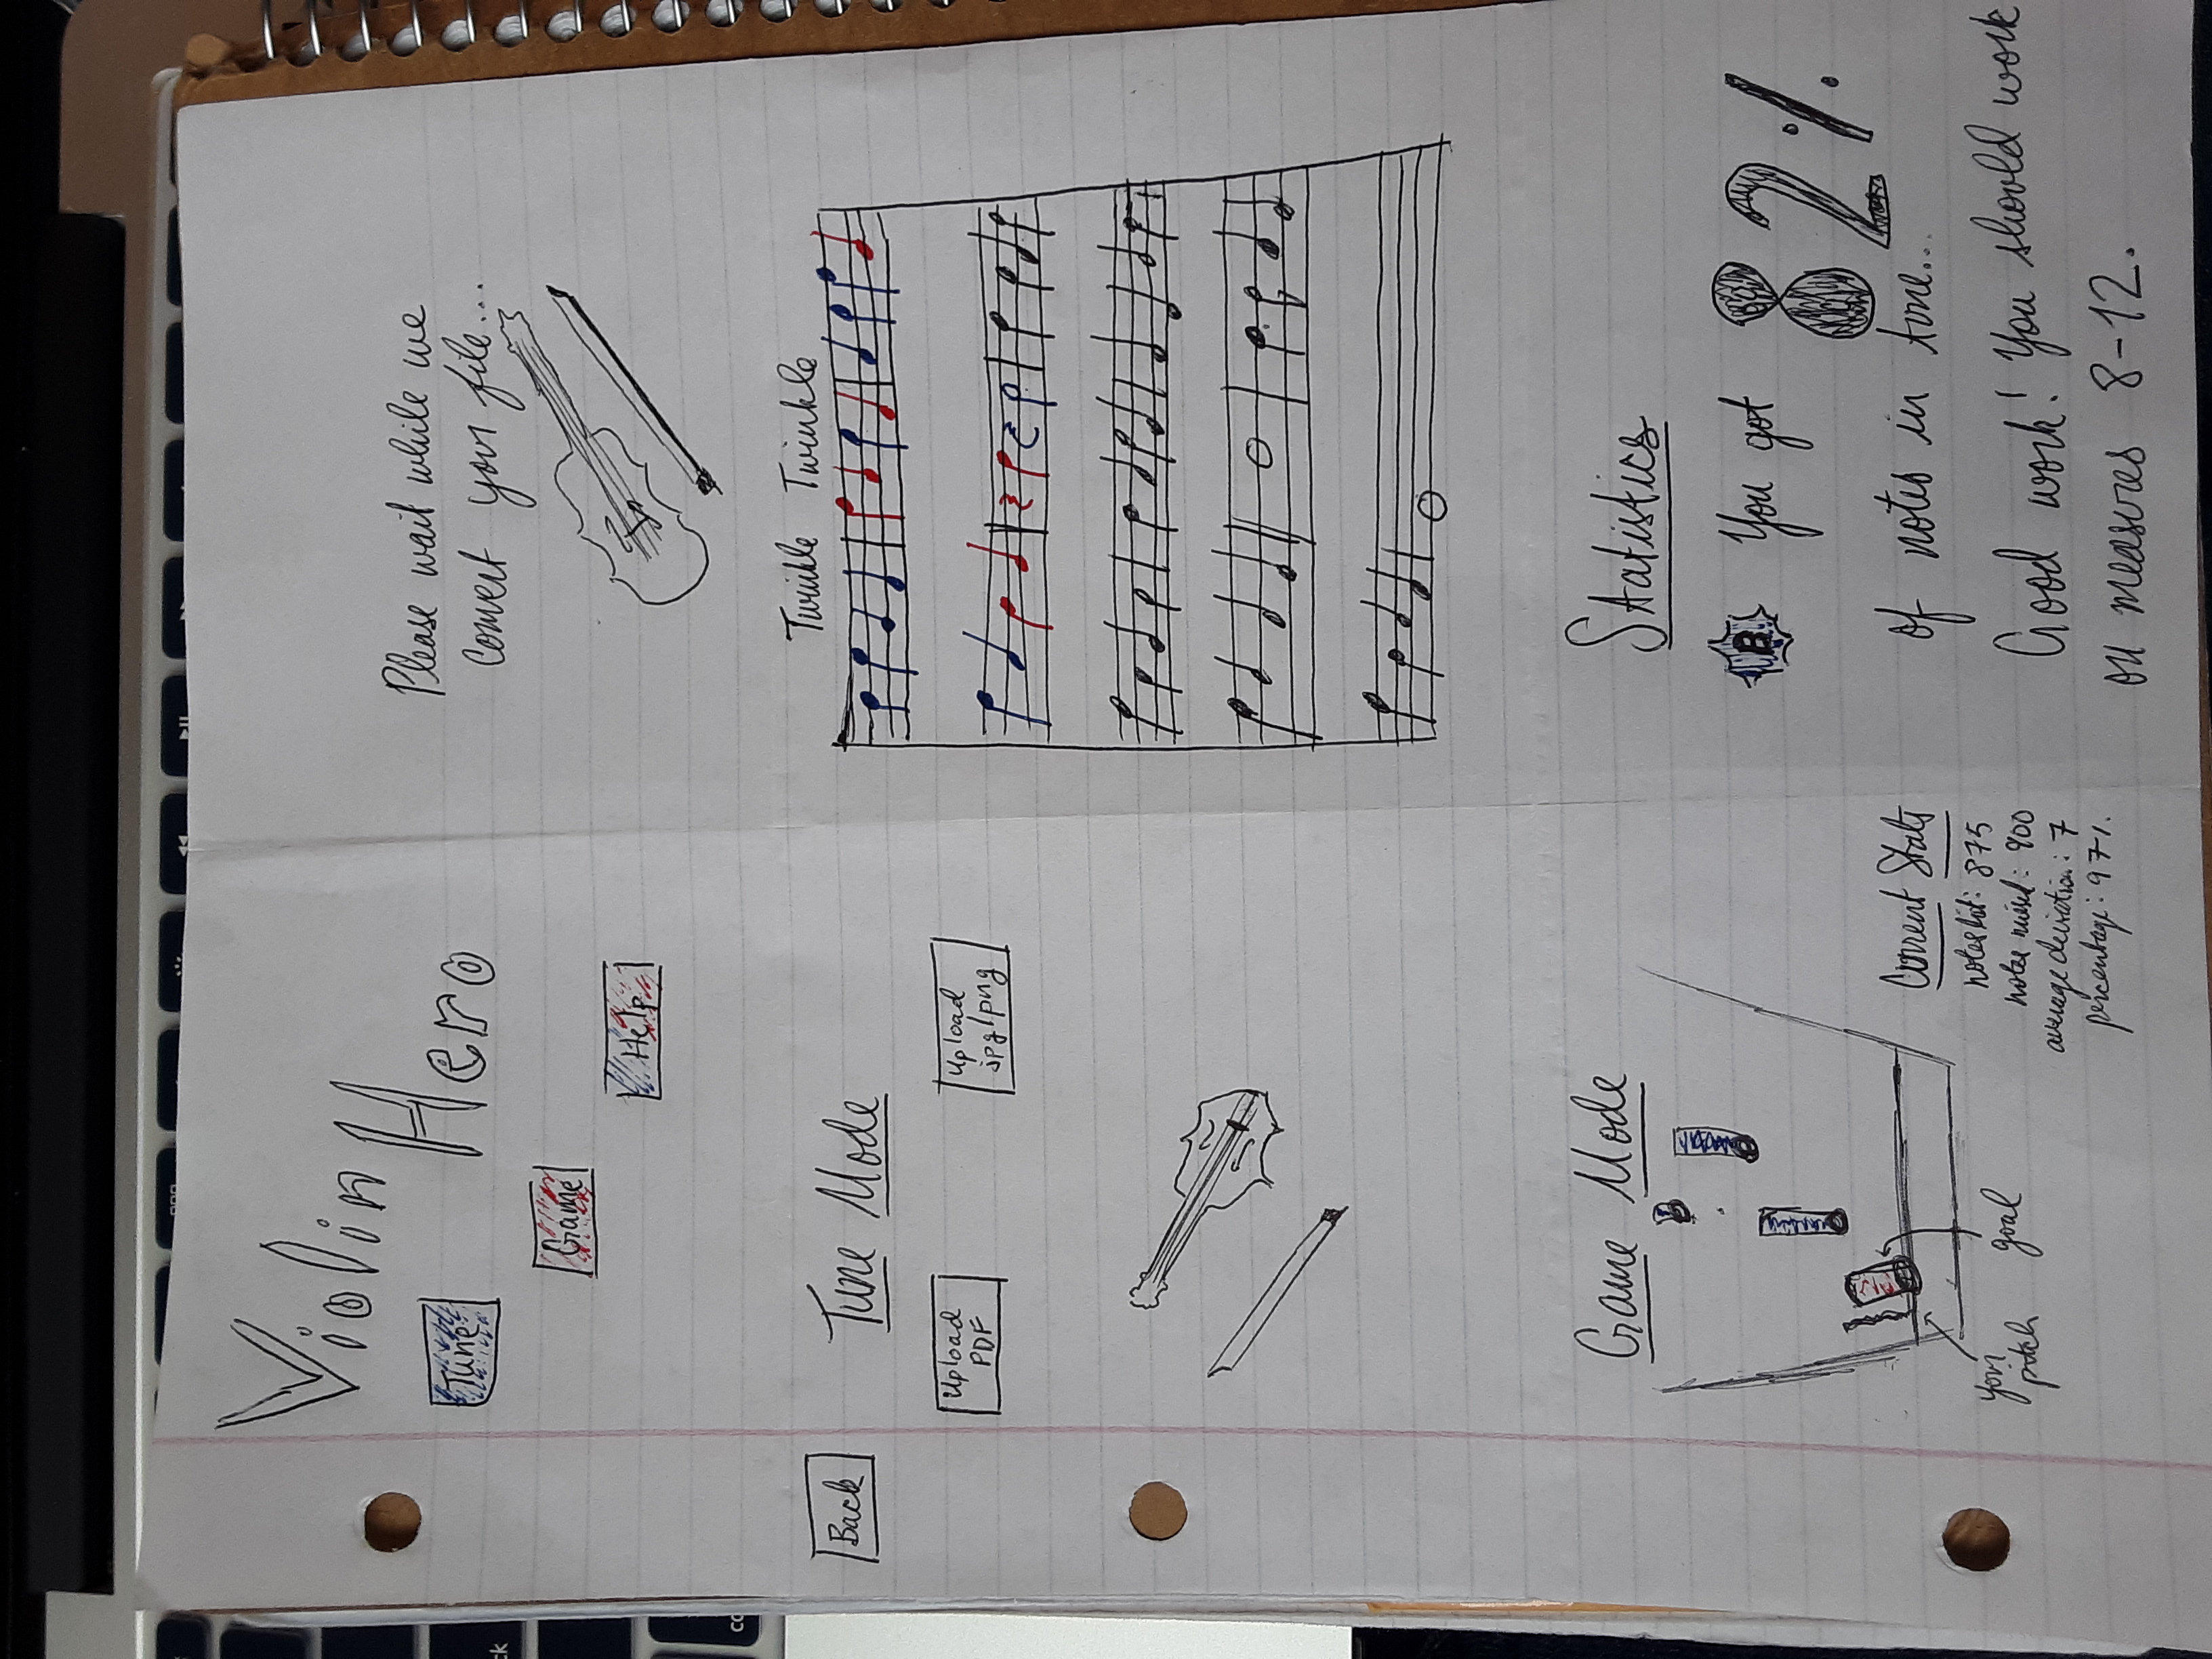 Violin
Hero
Tune
Game
Help
Please wait while we
convert your file...
Back
Tune Mode
Upload
PDF
Upload
jpg/png
Twinkle Twinkle
Game Mode
your
pitch
goal
Current Stats
notes hit: 875
notes missed: 900
average deviation: 7
percentage: 97%
Statistics
B You got 82%
of notes in tune...
Good work! You should work
on measures 8-12.